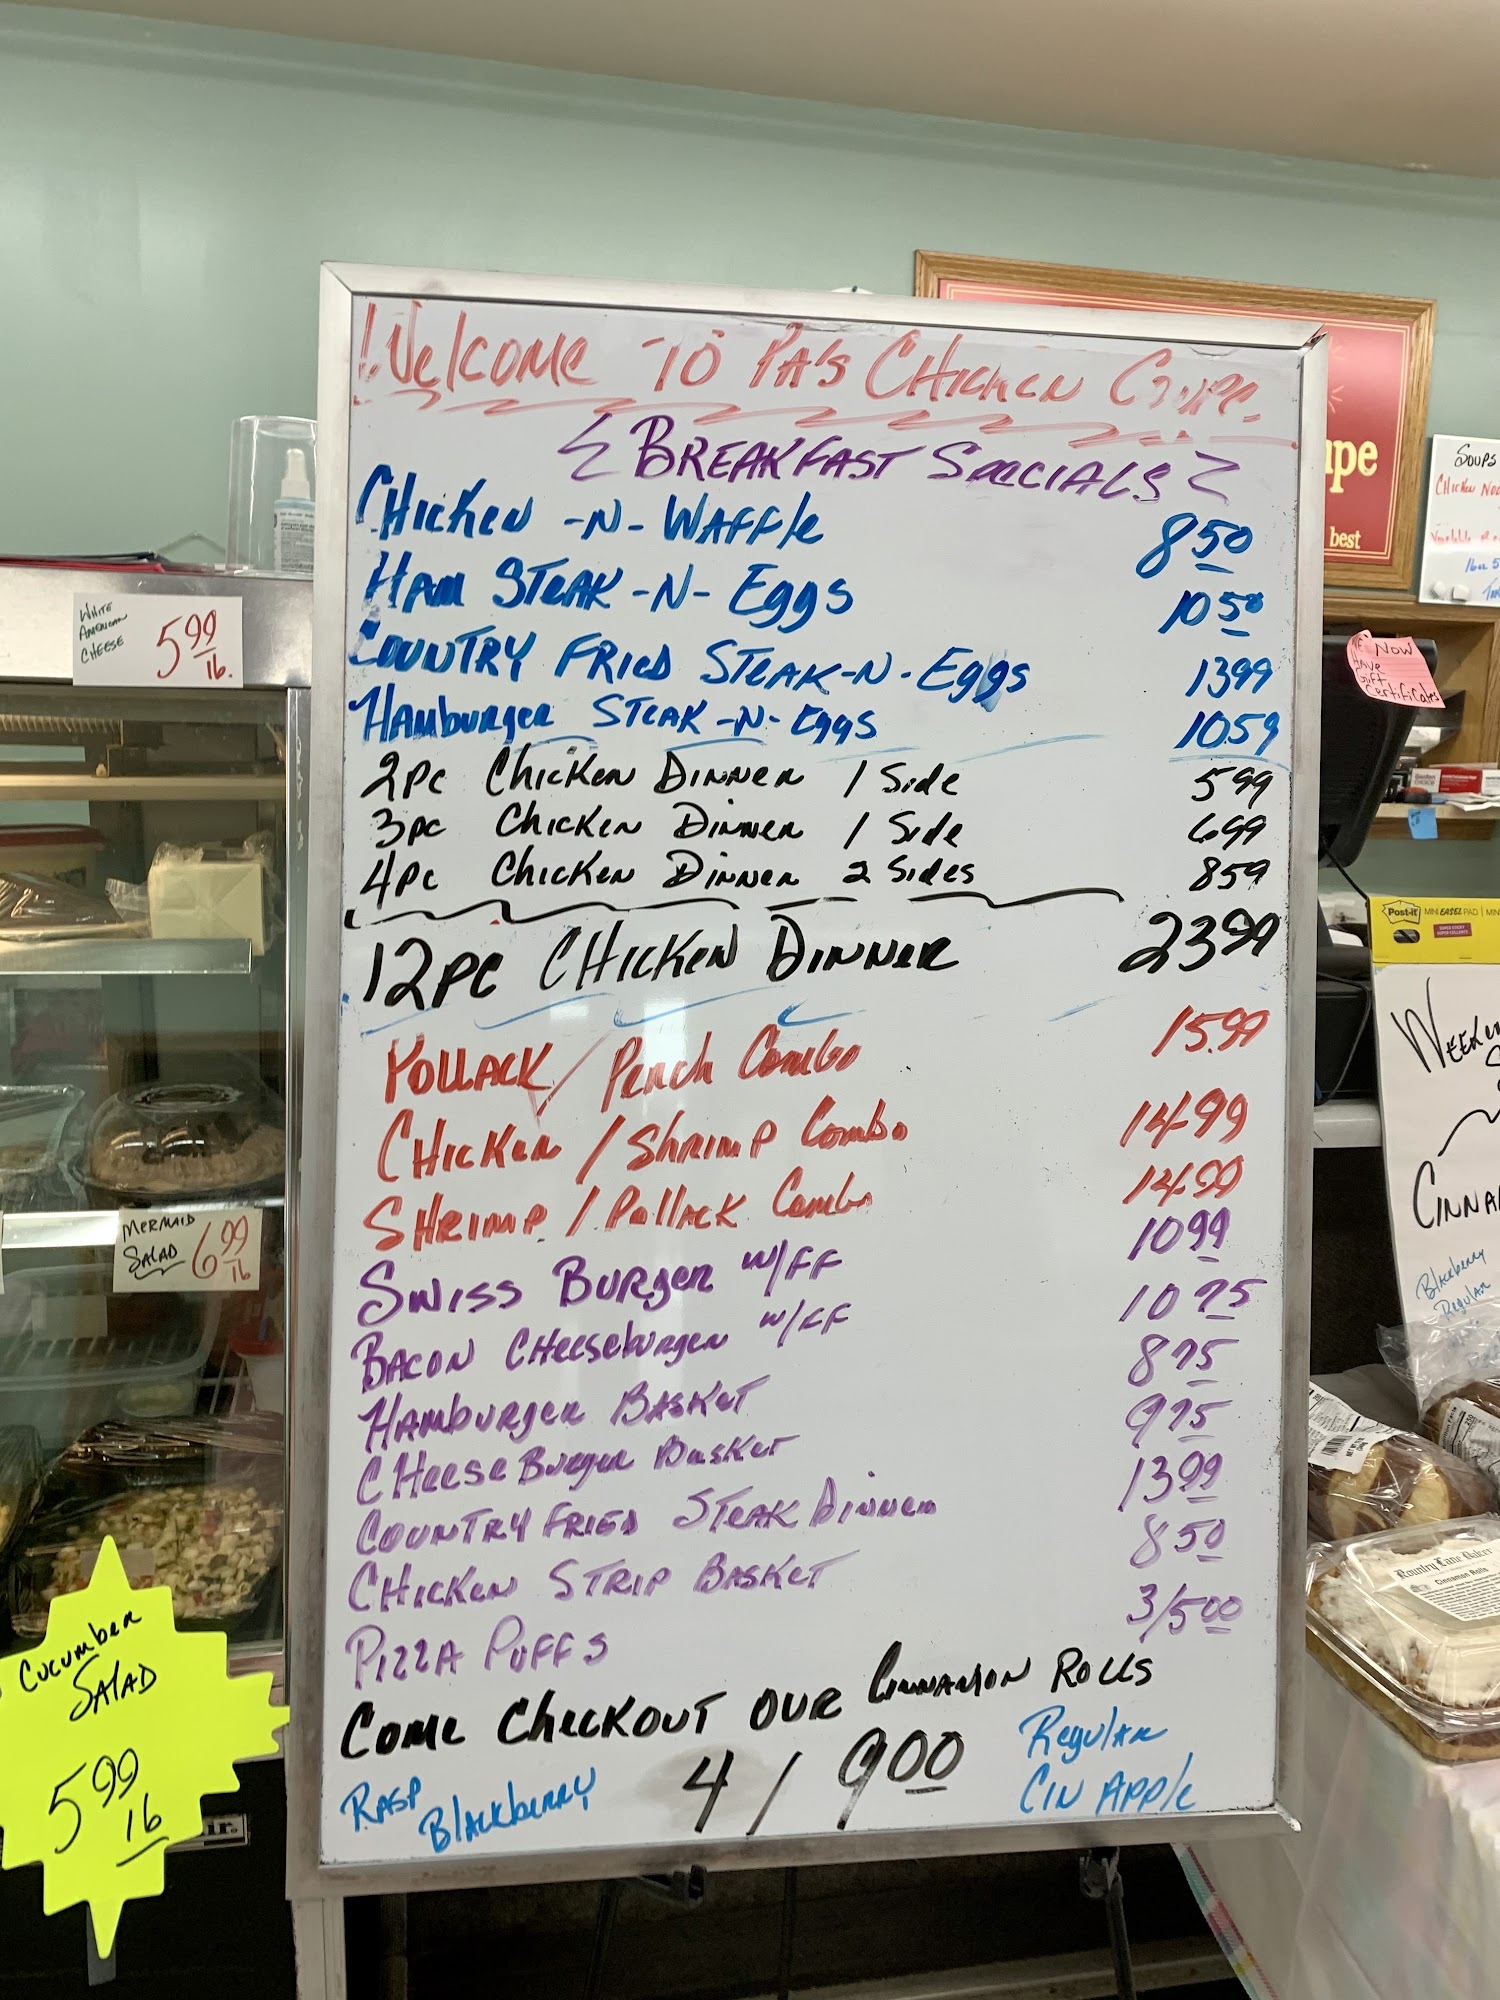 Welcome to Pa's Chicken Coupe.
Breakfast Specials
Chicken -N- Waffle 8.50
Ham Steak -N- Eggs 10.50
Country Fried Steak -N- Eggs 13.99
Hamburger Steak -N- Eggs 10.59
2pc Chicken Dinner 1 Side 5.99
3pc Chicken Dinner 1 Side 6.99
4pc Chicken Dinner 2 Sides 8.59
12pc Chicken Dinner 23.99
Pollack / Perch Combo 15.99
Chicken / Shrimp Combo 14.99
Shrimp / Pollack Combo 14.99
Swiss Burger w/FF 10.99
Bacon Cheeseburger w/FF 10.75
Hamburger Basket 8.75
CheeseBurger Basket 9.75
Country Fried Steak Dinner 13.99
Chicken Strip Basket 8.50
Pizza Puffs 3/5.00
Come Checkout our Cinnamon Rolls
4 / 9.00
Rasp
Blackberry
Regular
Cin Apple
White
American
Cheese
5.99 lb.
Mermaid
Salad
6.99 lb
Cucumber
Salad
5.99 lb
ape
best
Soups
Chicken
We Now
Have
Gift
Certificates
Post-it MINI EASEL PAD
Blackberry
Regular
Country Lane Baker
Cinnamon Rolls